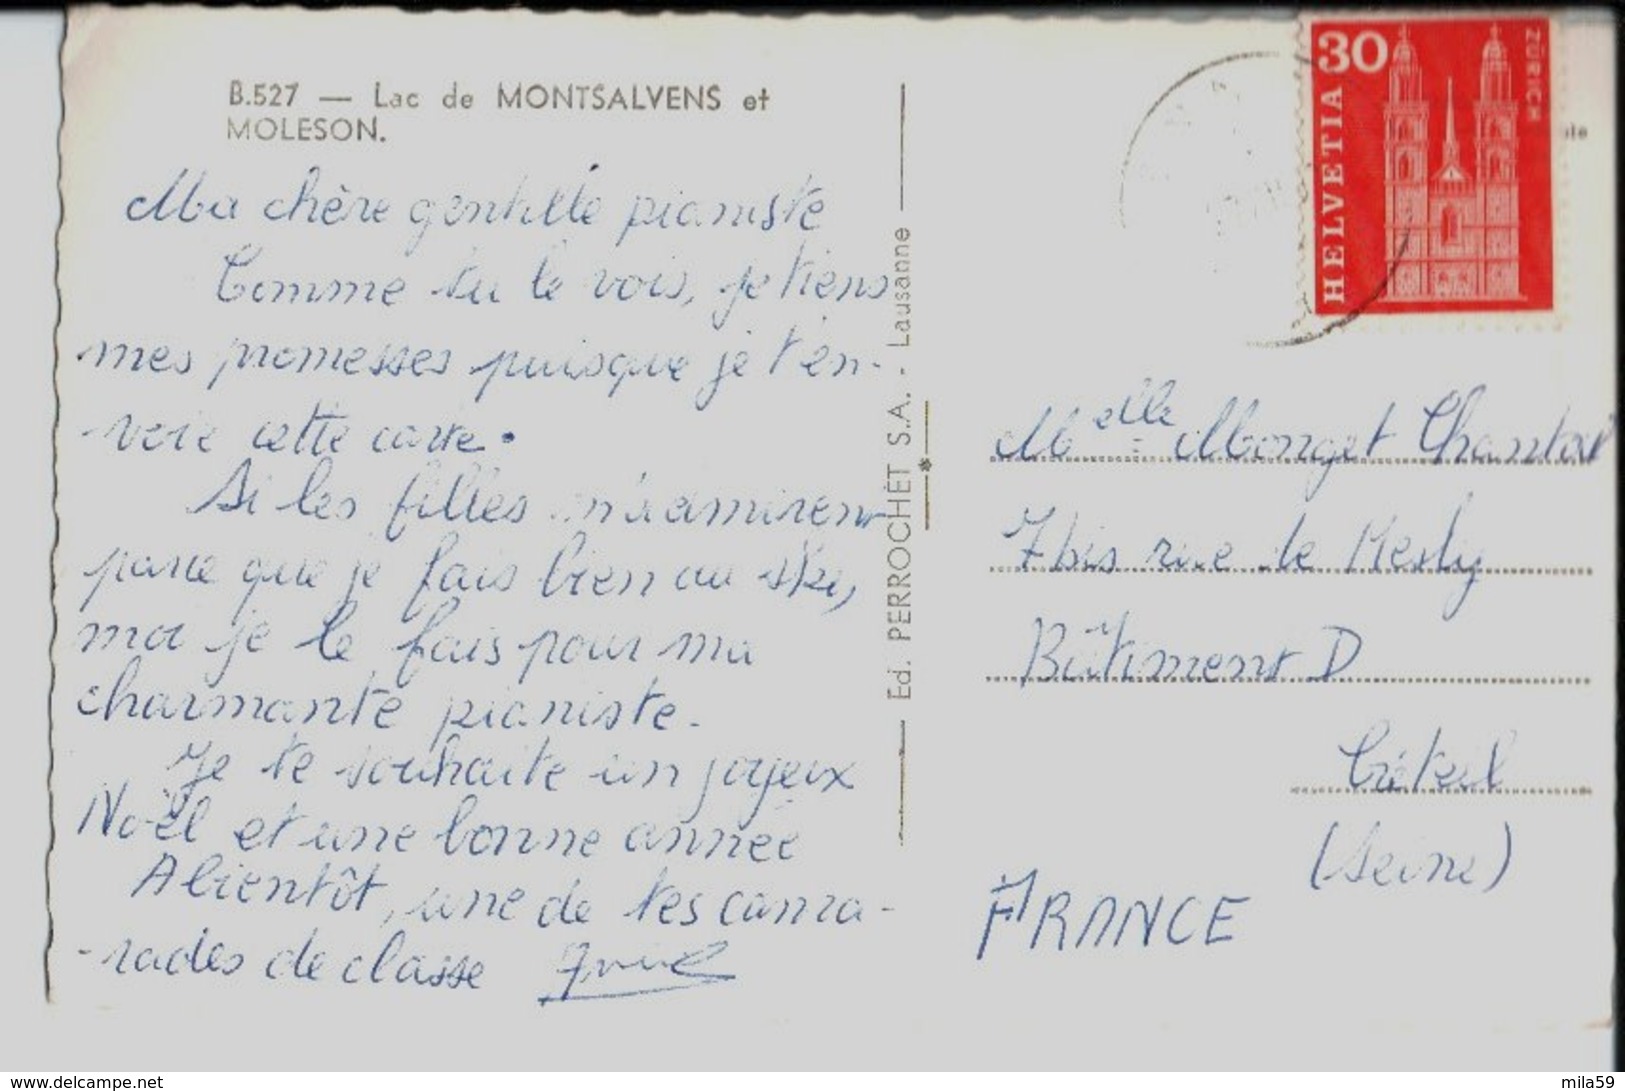 B.527 — Lac de MONTSALVENS et
MOLESON.
Ma chère gentille pianiste
Comme tu le vois, je tiens
mes promesses puisque je t'en-
-voie cette carte.
Si les filles m'admirent
parce que je fais bien au ski,
moi je le fais pour ma
charmante pianiste.
Je te souhaite un joyeux
Noël et une bonne année
A bientôt, une de tes cama-
-rades de classe
Ed. PERROCHET S.A. - Lausanne
30
HELVETIA
ZÜRICH
Melle Monget Chantal
7 bis rue de Mesly
Bâtiment D
Créteil
(Seine)
FRANCE
www.delcampe.net
mila59